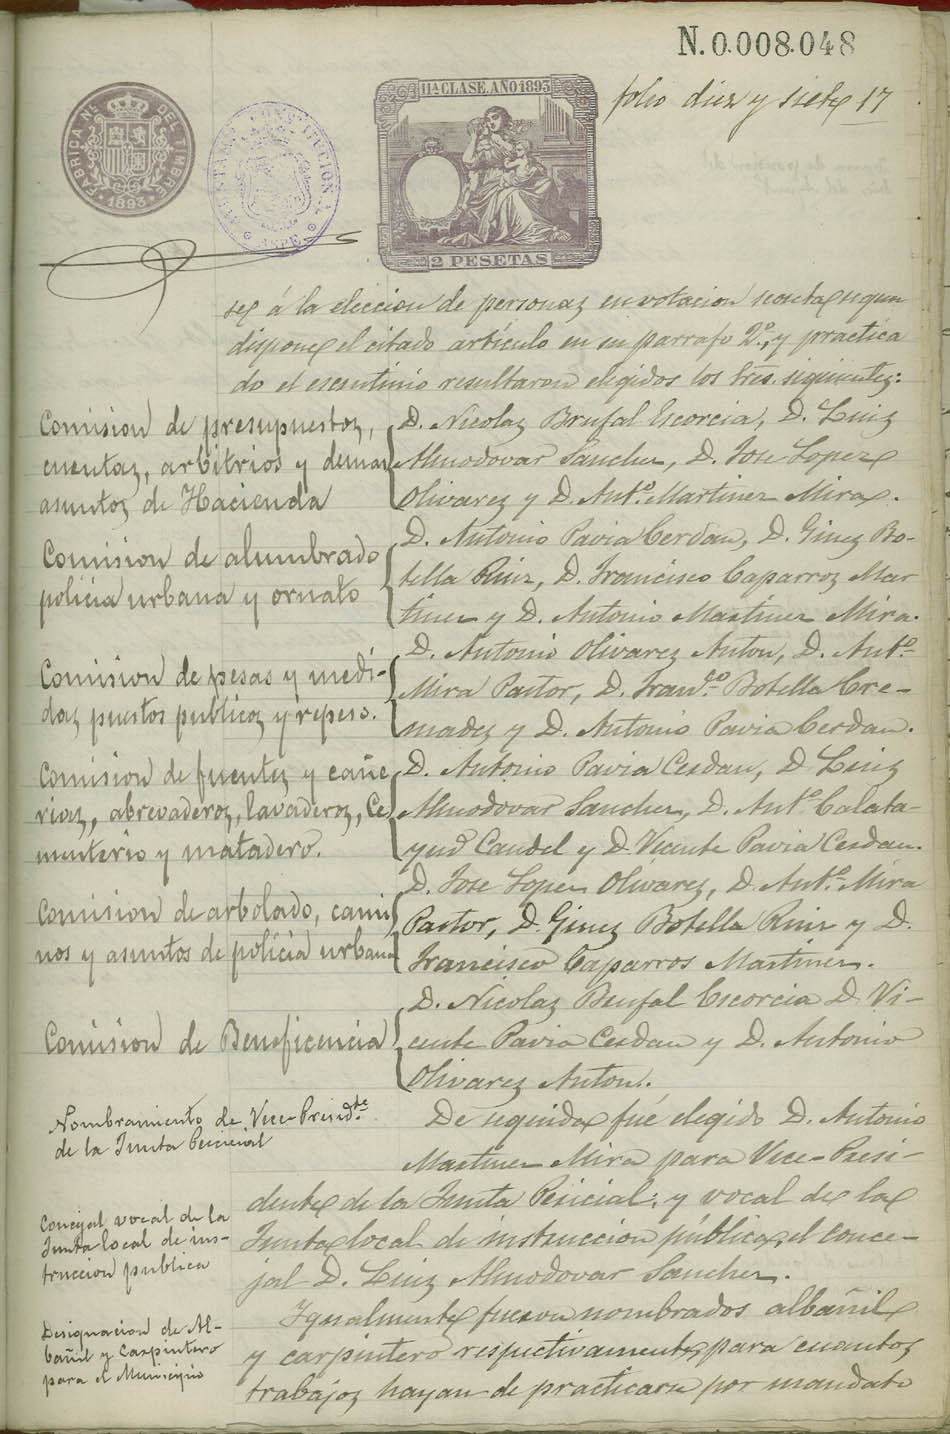 N.0.008.048
folio diez y siete 17
FABRICA NL. DEL TIMBRE
1893
AYUNTAMIENTO CONSTITUCIONAL
ASPE
11ª CLASE. AÑO 1893
2 PESETAS
se á la eleccion de personas en votacion secreta segun
dispone el citado artículo en su parrafo 2º, y practica
do el escrutinio resultaron elegidos los tres siguientes:
Comision de presupuestos,
cuentas, arbitrios y demas
asuntos de Hacienda
D. Nicolas Brufal Escorcia, D. Luis
Almodovar Sanchez, D. Jose Lopez
Olivares y D. Antº. Martinez Mira.
Comision de alumbrado
policia urbana y ornato
D. Antonio Pavia Cerdan, D. Gines Bo-
tella Ruiz, D. Francisco Caparros Mar
tinez y D. Antonio Martinez Mira.
Comision de pesas y medi-
das puestos publicos y repeso.
D. Antonio Olivares Anton, D. Antº.
Mira Pastor, D. Franº. Botella Cre-
mades y D. Antonio Pavia Cerdan.
Comision de fuentes y cañe
rias, abrevaderos, lavaderos, Ce
menterio y matadero.
D. Antonio Pavia Cerdan, D Luis
Almodovar Sanchez, D. Antº. Calata-
yud Candel y D. Vicente Pavia Cerdan.
Comision de arbolado, cami
nos y asuntos de policia urbana
D. Jose Lopez Olivares, D. Antº. Mira
Pastor, D. Gines Botella Ruiz y D.
Francisco Caparros Martinez.
Comision de Beneficencia
D. Nicolas Brufal Escorcia D. Vi-
cente Pavia Cerdan y D. Antonio
Olivares Anton.
Nombramiento de Vice-Presidte.
de la Junta Pericial
De seguida fué elegido D. Antonio
Martinez Mira para Vice-Presi-
dente de la Junta Pericial: y vocal de la
Concejal vocal de la
Junta local de ins-
truccion publica
Junta local de instruccion pública, el conce-
jal D. Luis Almodovar Sanchez.
Designacion de Al-
bañil y Carpintero
para el Municipio
Igualmente fueron nombrados albañil
y carpintero respectivamente, para cuantos
trabajos hayan de practicarse por mandato